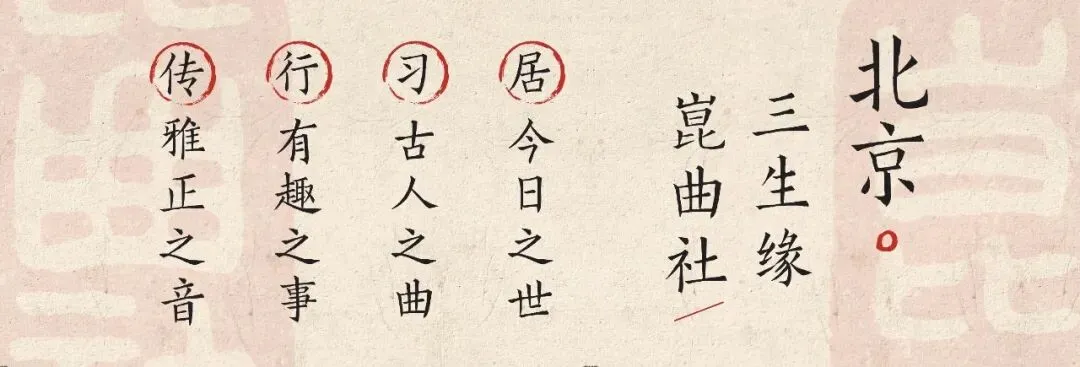 北京
三生缘
崑曲社
居今日之世
习古人之曲
行有趣之事
传雅正之音